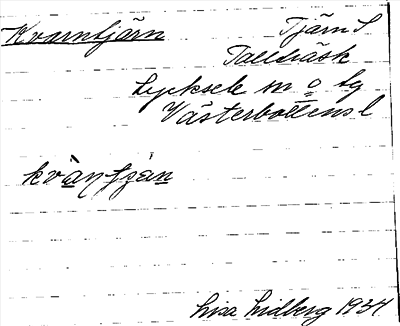 Kvarntjärn
Tjärn S
Talltiäsk
Lycksele m o lg
Västerbottens l
kvὰη ʃʒὰn
Lisa Lidberg 1934